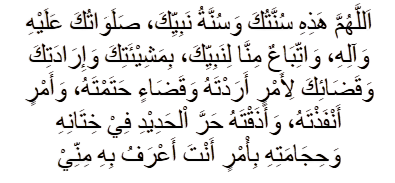 اَللَّهُمَّ هَذِهِ سُنَّتُكَ وَسُنَّةُ نَبِيِّكَ، صَلَوَاتُكَ عَلَيْهِ
وَآلِهِ، وَاتِّبَاعٌ مِنَّا لِنَبِيِّكَ، بِمَشِيْئَتِكَ وَإِرَادَتِكَ
وَقَضَائِكَ لِأَمْرٍ أَرَدْتَهُ وَقَضَاءٍ حَتَمْتَهُ، وَأَمْرٍ
أَنْفَذْتَهُ، وَأَذَقْتَهُ حَرَّ الْحَدِيْدِ فِيْ خِتَانِهِ
وَحِجَامَتِهِ بِأَمْرٍ أَنْتَ أَعْرَفُ بِهِ مِنِّيْ